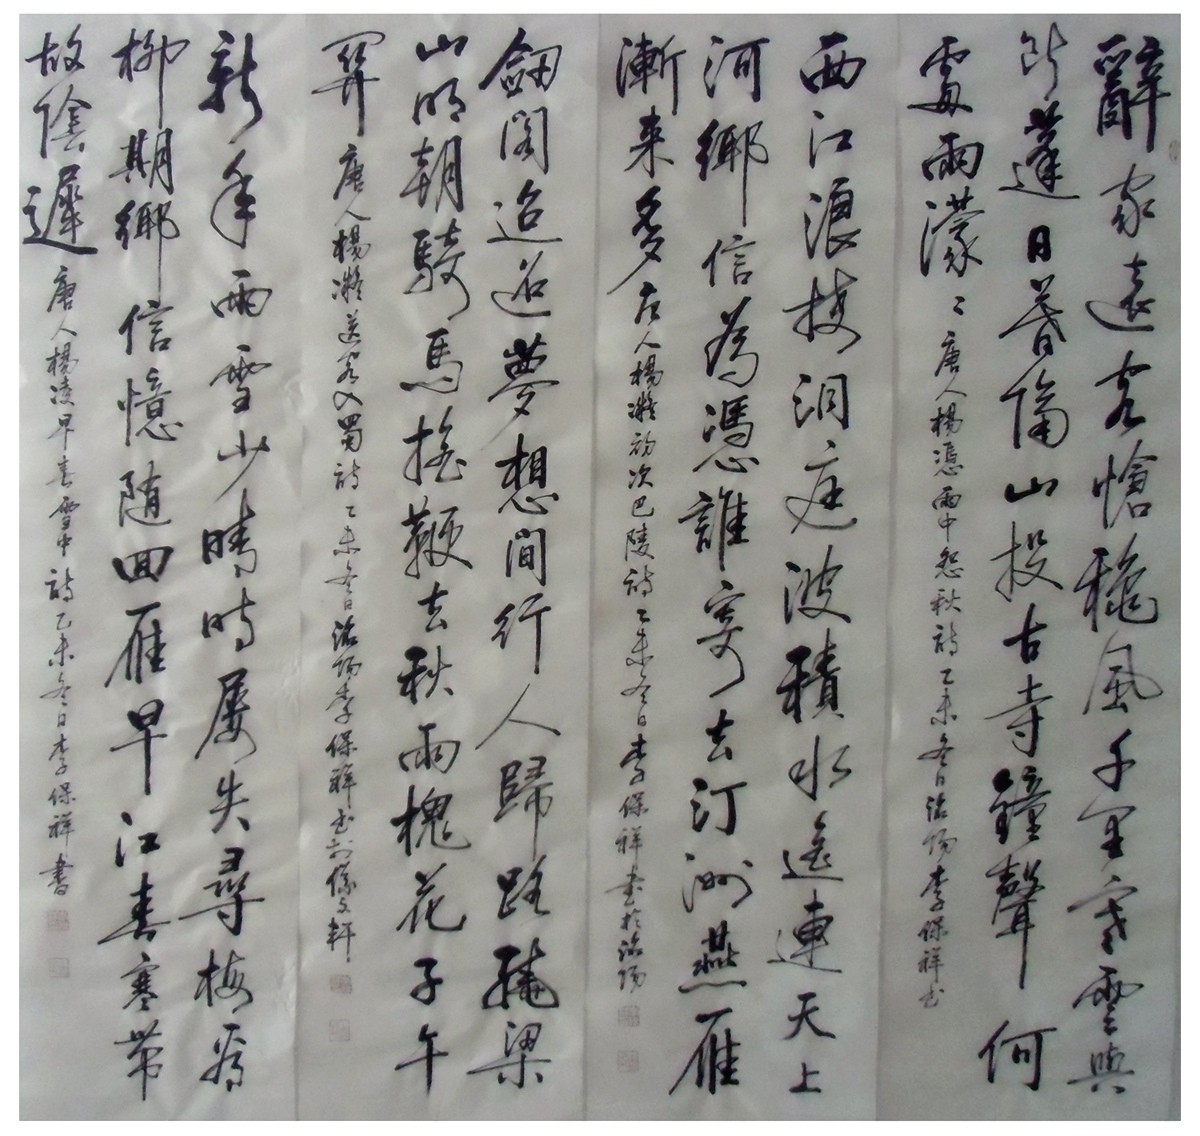 辭家遠客愴穐風千里寒雲與
断蓬日暮隔山投古寺鐘聲何
處雨濛〻唐人楊憑雨中怨秋詩乙未冬日洛陽李保祥书
西江浪接洞庭波積水遙連天上
河鄉信為憑誰寄去汀洲燕雁
漸来多唐人楊凝初次巴陵詩乙未冬日李保祥书於洛陽
劔閣迢迢夢想間行人歸路繞梁
山明朝騎馬搖鞭去秋雨槐花子午
關唐人楊凝送客入蜀詩乙未冬日洛陽李保祥书於文軒
新年雨雪少晴時屢失尋梅看
柳期鄉信憶随回雁早江春寒帶
故陰遲唐人楊凌早春雪中詩乙未冬日李保祥書